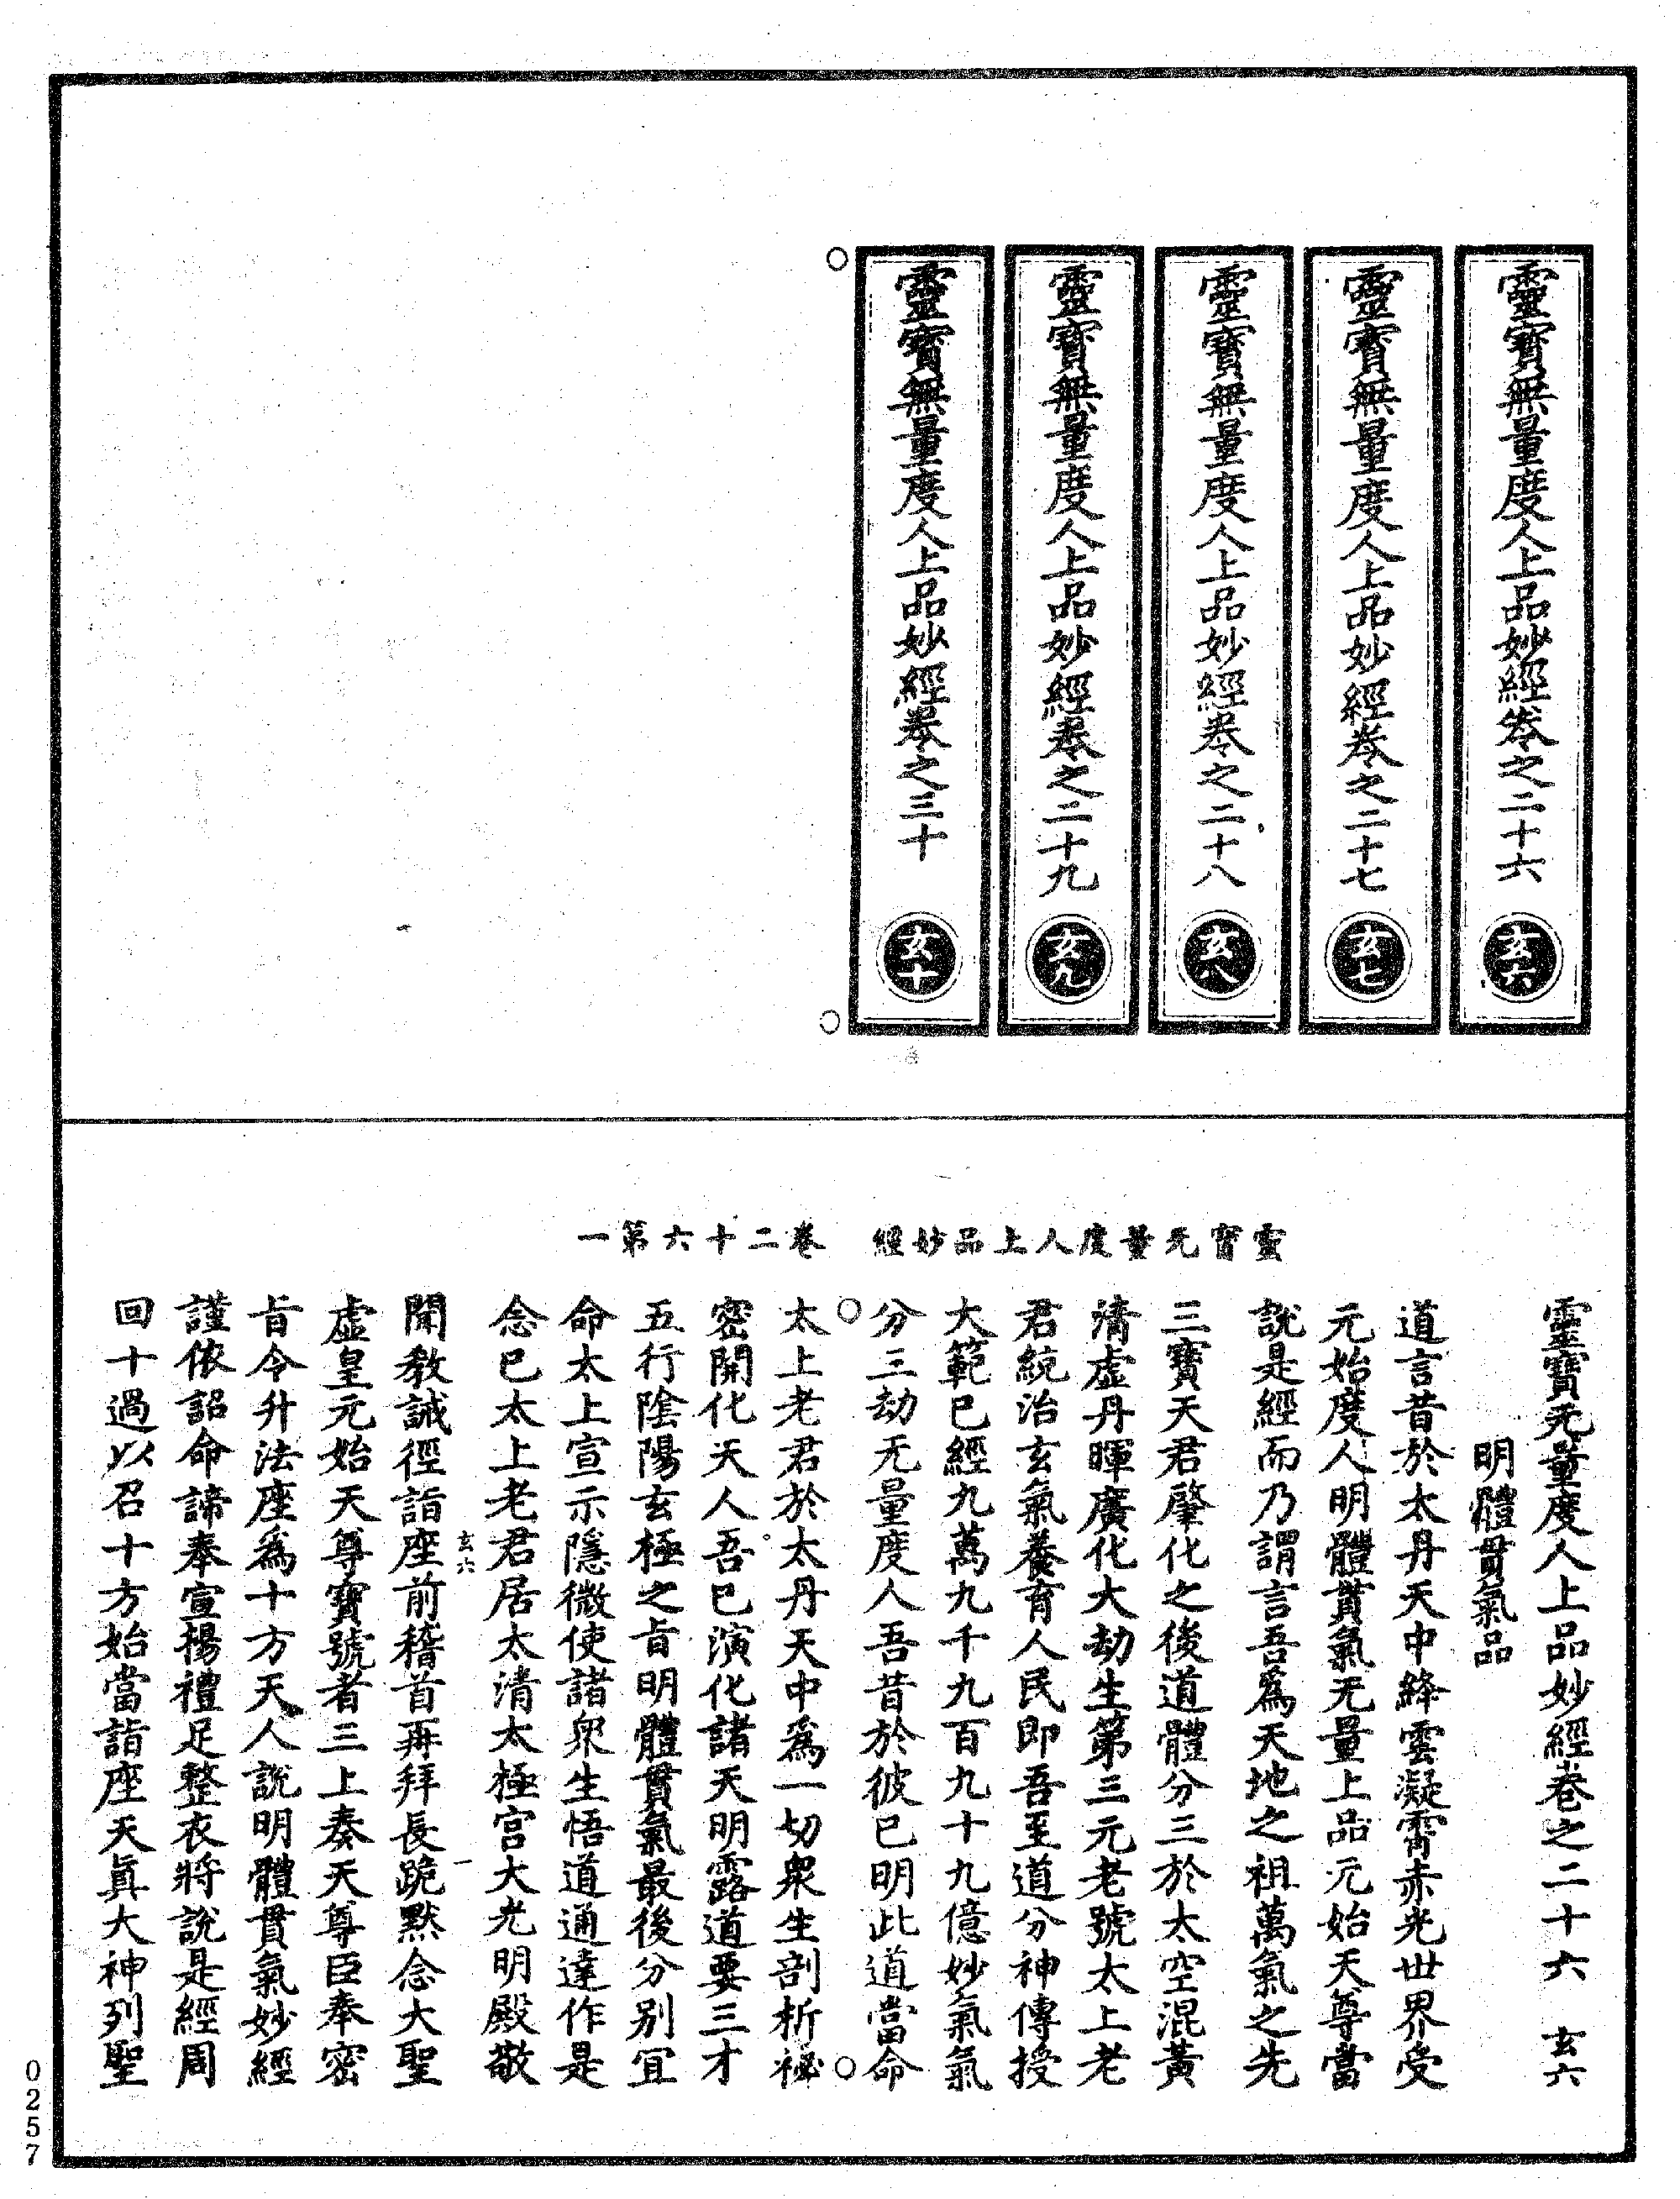 靈寶無量度人上品妙經卷之二十六
玄六
靈寶無量度人上品妙經卷之二十七
玄七
靈寶無量度人上品妙經卷之二十八
玄八
靈寶無量度人上品妙經卷之二十九
玄九
靈寶無量度人上品妙經卷之三十
玄十
靈寶无量度人上品妙經　卷二十六第一
靈寶无量度人上品妙經卷之二十六　玄六
明體貫氣品
道言昔於太丹天中絳雲凝霄赤光世界受
元始度人明體貫氣无量上品元始天尊當
說是經而乃謂言吾爲天地之祖萬氣之先
三寶天君肇化之後道體分三於太空混黃
清虛丹暉廣化大劫生第三元老號太上老
君統治玄氣養育人民即吾至道分神傳授
大範已經九萬九千九百九十九億妙氣氣
分三劫无量度人吾昔於彼已明此道當命
太上老君於太丹天中爲一切衆生剖析祕
密開化天人吾已演化諸天明露道要三才
五行陰陽玄極之旨明體貫氣最後分別宜
命太上宣示隱微使諸衆生悟道通達作是
念已太上老君居太清太極宮大光明殿敬
玄六　一
聞教誡徑詣座前稽首再拜長跪黙念大聖
虛皇元始天尊寶號者三上奏天尊臣奉密
旨令升法座爲十方天人說明體貫氣妙經
謹依詔命諦奉宣揚禮足整衣將說是經周
回十過以召十方始當詣座天眞大神列聖
0257